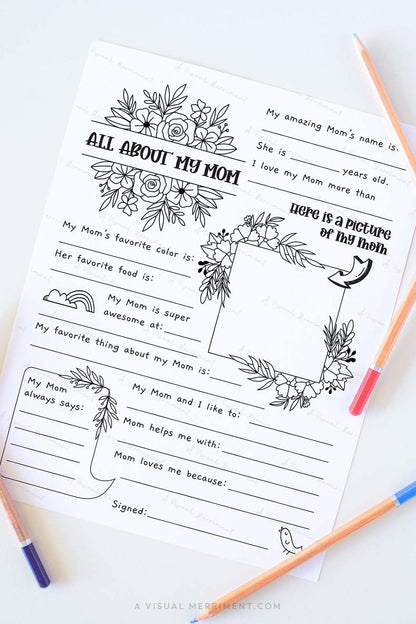 ALL ABOUT MY MOM
My amazing Mom's name is.
She is ________ years old.
I love my Mom more than
Here is a picture
of my mom
My Mom's favorite color is:
Her favorite food is:
My Mom is super
awesome at:
My favorite thing about my Mom is:
My Mom
always says:
My Mom and I like to:
Mom helps me with:
Mom loves me because:
Signed:
A Visual Merriment
A VISUAL MERRIMENT.COM